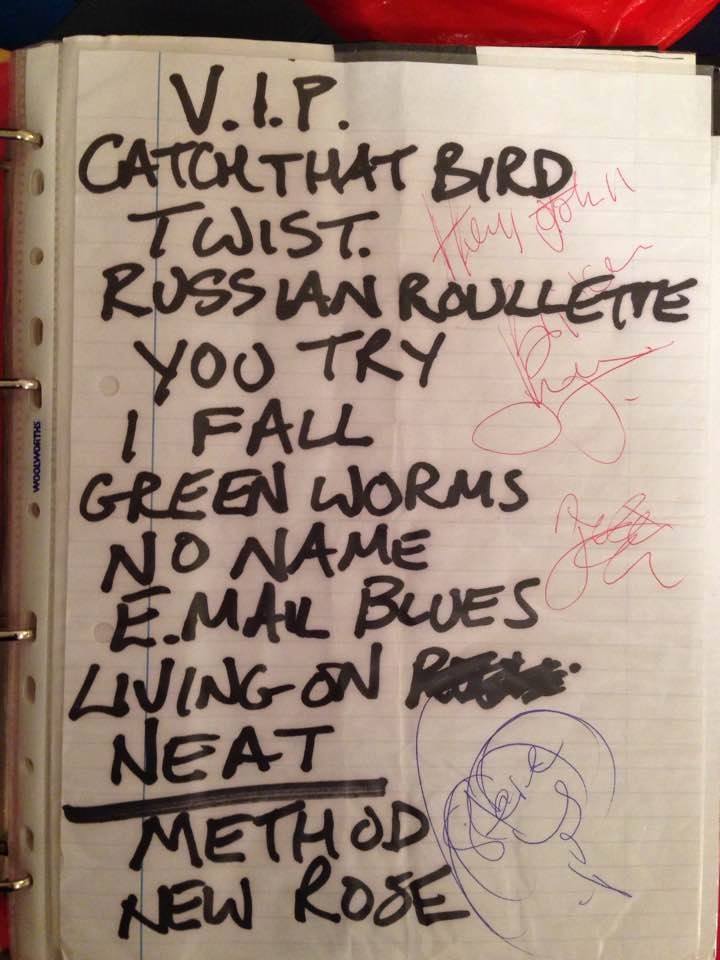 V.I.P.
CATCH THAT BIRD
TWIST.
RUSSIAN ROULLETTE
YOU TRY
I FALL
GREEN WORMS
NO NAME
E.MAIL BLUES
LIVING ON
NEAT
METHOD
NEW ROSE
Hey John
WOOLWORTHS